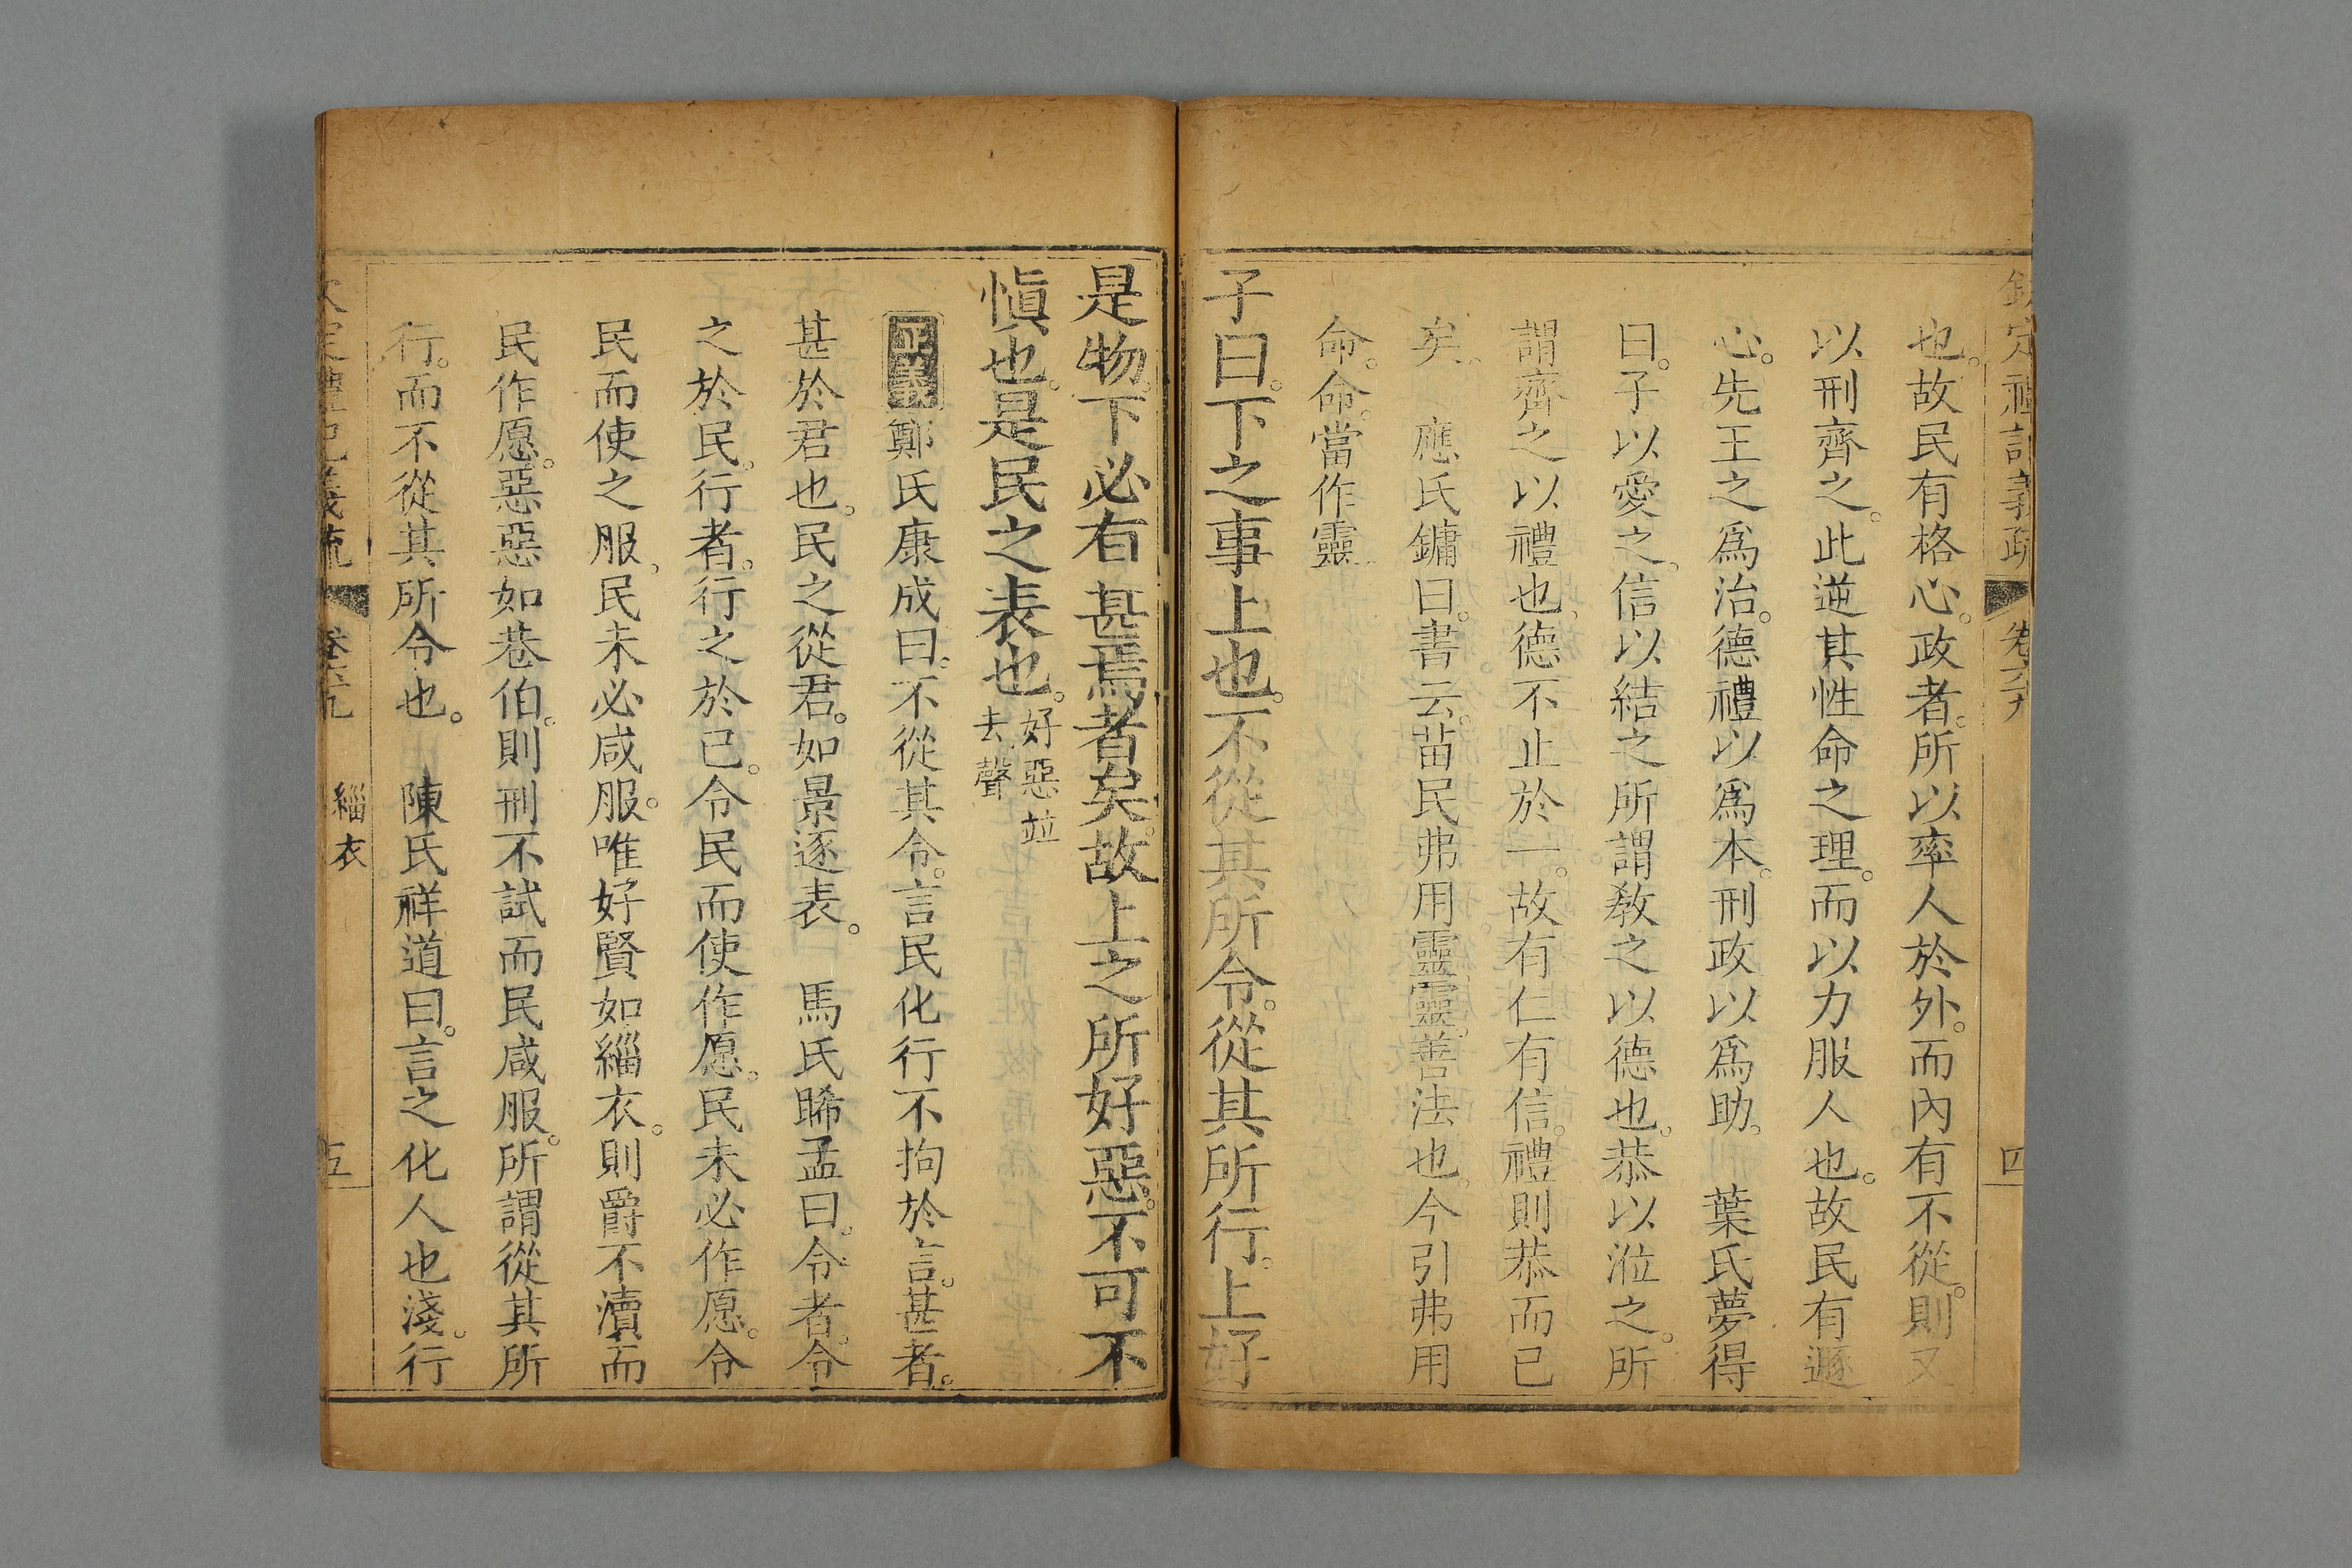 欽定禮記義疏 卷六十九 四
也。故民有格心。政者。所以率人於外。而內有不從。則又
以刑齊之。此逆其性命之理。而以力服人也。故民有遯
心。先王之爲治。德禮以爲本。刑政以爲助。 葉氏夢得
曰。子以愛之。信以結之所謂敎之以德也。恭以涖之。所
謂齊之以禮也。德不止於一。故有仁有信。禮則恭而已
矣。 應氏鏞曰。書云。苗民弗用靈靈。善法也。今引弗用
命。命。當作靈
子曰。下之事上也。不從其所令。從其所行。上好
是物。下必有甚焉者矣。故上之所好惡。不可不
愼也。是民之表也。好惡竝去聲
正義鄭氏康成曰。不從其令。言民化行不拘於言。甚者。
甚於君也。民之從君。如景逐表。 馬氏睎孟曰。令者。令
之於民。行者。行之於已。令民而使作愿。民未必作愿。令
民而使之服。民未必咸服。唯好賢如緇衣。則爵不瀆而
民作愿。惡惡如巷伯。則刑不試而民咸服。所謂從其所
行。而不從其所令也。 陳氏祥道曰。言之化人也淺。行
欽定禮記義疏 卷六十九 緇衣 五